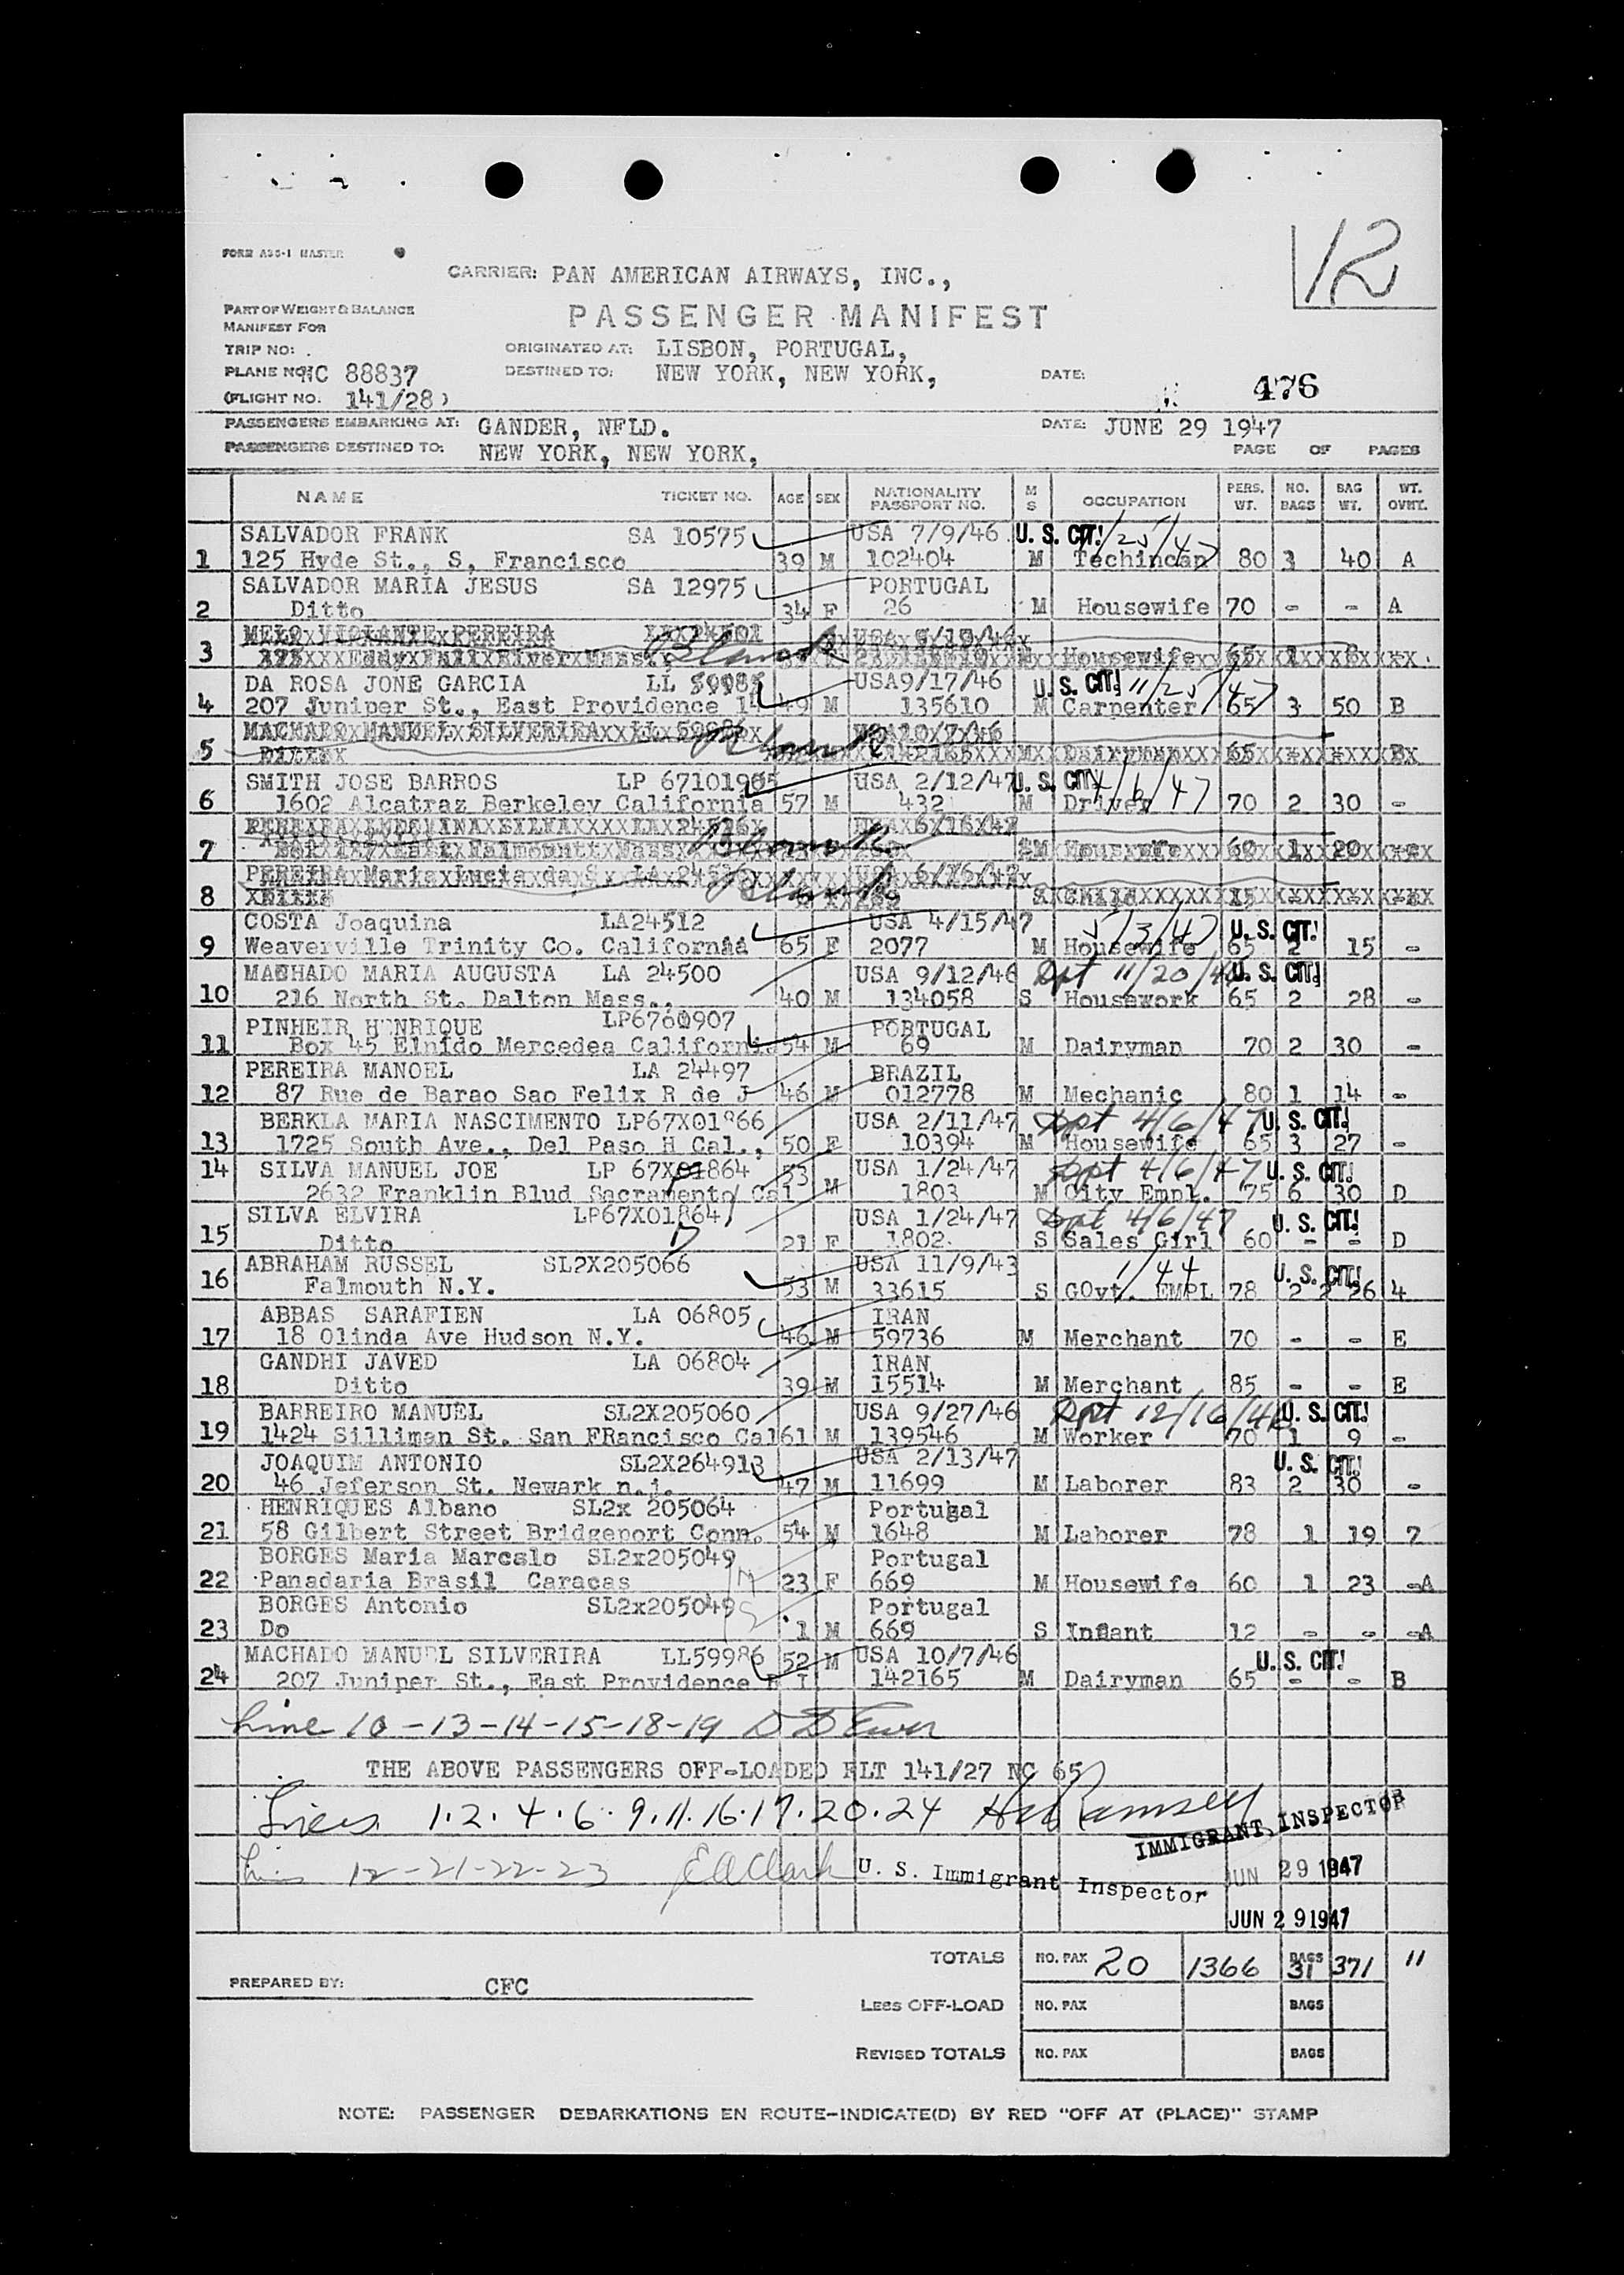 12
FORM A36-1 MASTER
CARRIER: PAN AMERICAN AIRWAYS, INC.,
PART OF WEIGHT & BALANCE
MANIFEST FOR
PASSENGER MANIFEST
TRIP NO:
ORIGINATED AT: LISBON, PORTUGAL,
PLANE NO: NC 88837 DESTINED TO: NEW YORK, NEW YORK, DATE: 476
(FLIGHT NO. 141/28)
PASSENGERS EMBARKING AT: GANDER, NFLD. DATE: JUNE 29 1947
PASSENGERS DESTINED TO: NEW YORK, NEW YORK, PAGE OF PAGES
NAME TICKET NO. AGE SEX NATIONALITY PASSPORT NO. M S OCCUPATION PERS. WT. NO. BAGS BAG WT. WT. OVNT.
SALVADOR FRANK SA 10575 USA 7/9/46 U. S. CIT!
1 125 Hyde St., S, Francisco 39 M 102404 M Techincan 80 3 40 A
SALVADOR MARIA JESUS SA 12975 PORTUGAL
2 Ditto 34 F 26 M Housewife 70 - - A
MELO VIOLANTE PEREIRA
3 Blank Housewife 65 1
DA ROSA JONE GARCIA LL 59985 USA9/17/46 U. S. CIT! 11/25/47
4 207 Juniper St., East Providence 49 M 135610 M Carpenter 65 3 50 B
MACHADO MANUEL SILVERIRA LL 59986 USA10/7/46
5 Ditto Blank 142165 M Dairyman 65 B
SMITH JOSE BARROS LP 67101905 USA 2/12/47 U. S. CIT! 4/6/47
6 1602 Alcatraz Berkeley California 57 M 432 M Driver 70 2 30 -
PEREIRA SILVA 6/16/47
7 East Falmouth Mass Blank 60 1 20
PEREIRA Maria Lucia da S. LA
8 Blank Child 15
COSTA Joaquina LA24512 USA 4/15/47 5/3/47 U. S. CIT!
9 Weaverville Trinity Co. Californàà 65 F 2077 M Housewife 65 2 15 -
MACHADO MARIA AUGUSTA LA 24500 USA 9/12/46 Dpt 11/20/46 U. S. CIT!
10 216 North St. Dalton Mass., 40 M 134058 S Housework 65 2 28 -
PINHEIR HENRIQUE LP6760907 PORTUGAL
11 Box 45 Elnido Mercedea California 54 M 69 M Dairyman 70 2 30 -
PEREIRA MANOEL LA 24497 BRAZIL
12 87 Rue de Barao Sao Felix R de J 46 M 012778 M Mechanic 80 1 14 -
BERKLA MARIA NASCIMENTO LP67X01866 USA 2/11/47 Dpt 4/6/47 U. S. CIT!
13 1725 South Ave., Del Paso H Cal., 50 F 10394 M Housewife 65 3 27 -
14 SILVA MANUEL JOE LP 67X01864 53 USA 1/24/47 Dpt 4/6/47 U. S. CIT!
2632 Franklin Blud Sacramento Cal M 1803 M City Empl. 75 6 30 D
SILVA ELVIRA LP67X01864 USA 1/24/47 Dpt 4/6/47 U. S. CIT!
15 Ditto 21 F 1802 S Sales Girl 60 - - D
ABRAHAM RUSSEL SL2X205066 USA 11/9/43 1/44 U. S. CIT!
16 Falmouth N.Y. 53 M 33615 S GOvt. EMPL 78 2 2 26 4
ABBAS SARAFIEN LA 06805 IRAN
17 18 Olinda Ave Hudson N.Y. 46 M 59736 M Merchant 70 - - E
GANDHI JAVED LA 06804 IRAN
18 Ditto 39 M 15514 M Merchant 85 - - E
BARREIRO MANUEL SL2X205060 USA 9/27/46 Dpt 12/16/46 U. S. CIT!
19 1424 Silliman St. San FRancisco Cal 61 M 139546 M Worker 70 1 9 -
JOAQUIM ANTONIO SL2X264913 USA 2/13/47 U. S. CIT!
20 46 Jeferson St. Newark n.j. 47 M 11699 M Laborer 83 2 30 -
HENRIQUES Albano SL2x 205064 Portugal
21 58 Gilbert Street Bridgeport Conn. 54 M 1648 M Laborer 78 1 19 7
BORGES Maria Marcelo SL2x205049 Portugal
22 Panadaria Brasil Caracas 23 F 669 M Housewife 60 1 23 -A
BORGES Antonio SL2x205049 Portugal
23 Do 1 M 669 S Infant 12 - - -A
MACHADO MANUEL SILVERIRA LL59986 52 M USA 10/7/46 U. S. CIT!
24 207 Juniper St., East Providence R I 142165 M Dairyman 65 - - B
Line 10-13-14-15-18-19
THE ABOVE PASSENGERS OFF-LOADED FLT 141/27 NC 65
Lines 1.2.4.6.9.11.16.17.20.24 Ramsey
IMMIGRANT INSPECTOR
12-21-22-23 EA Clark U. S. Immigrant Inspector JUN 29 1947
JUN 29 1947
TOTALS NO. PAX 20 1366 BAGS 31 371 11
PREPARED BY: CFC
LESS OFF-LOAD NO. PAX BAGS
REVISED TOTALS NO. PAX BAGS
NOTE: PASSENGER DEBARKATIONS EN ROUTE-INDICATE(D) BY RED "OFF AT (PLACE)" STAMP